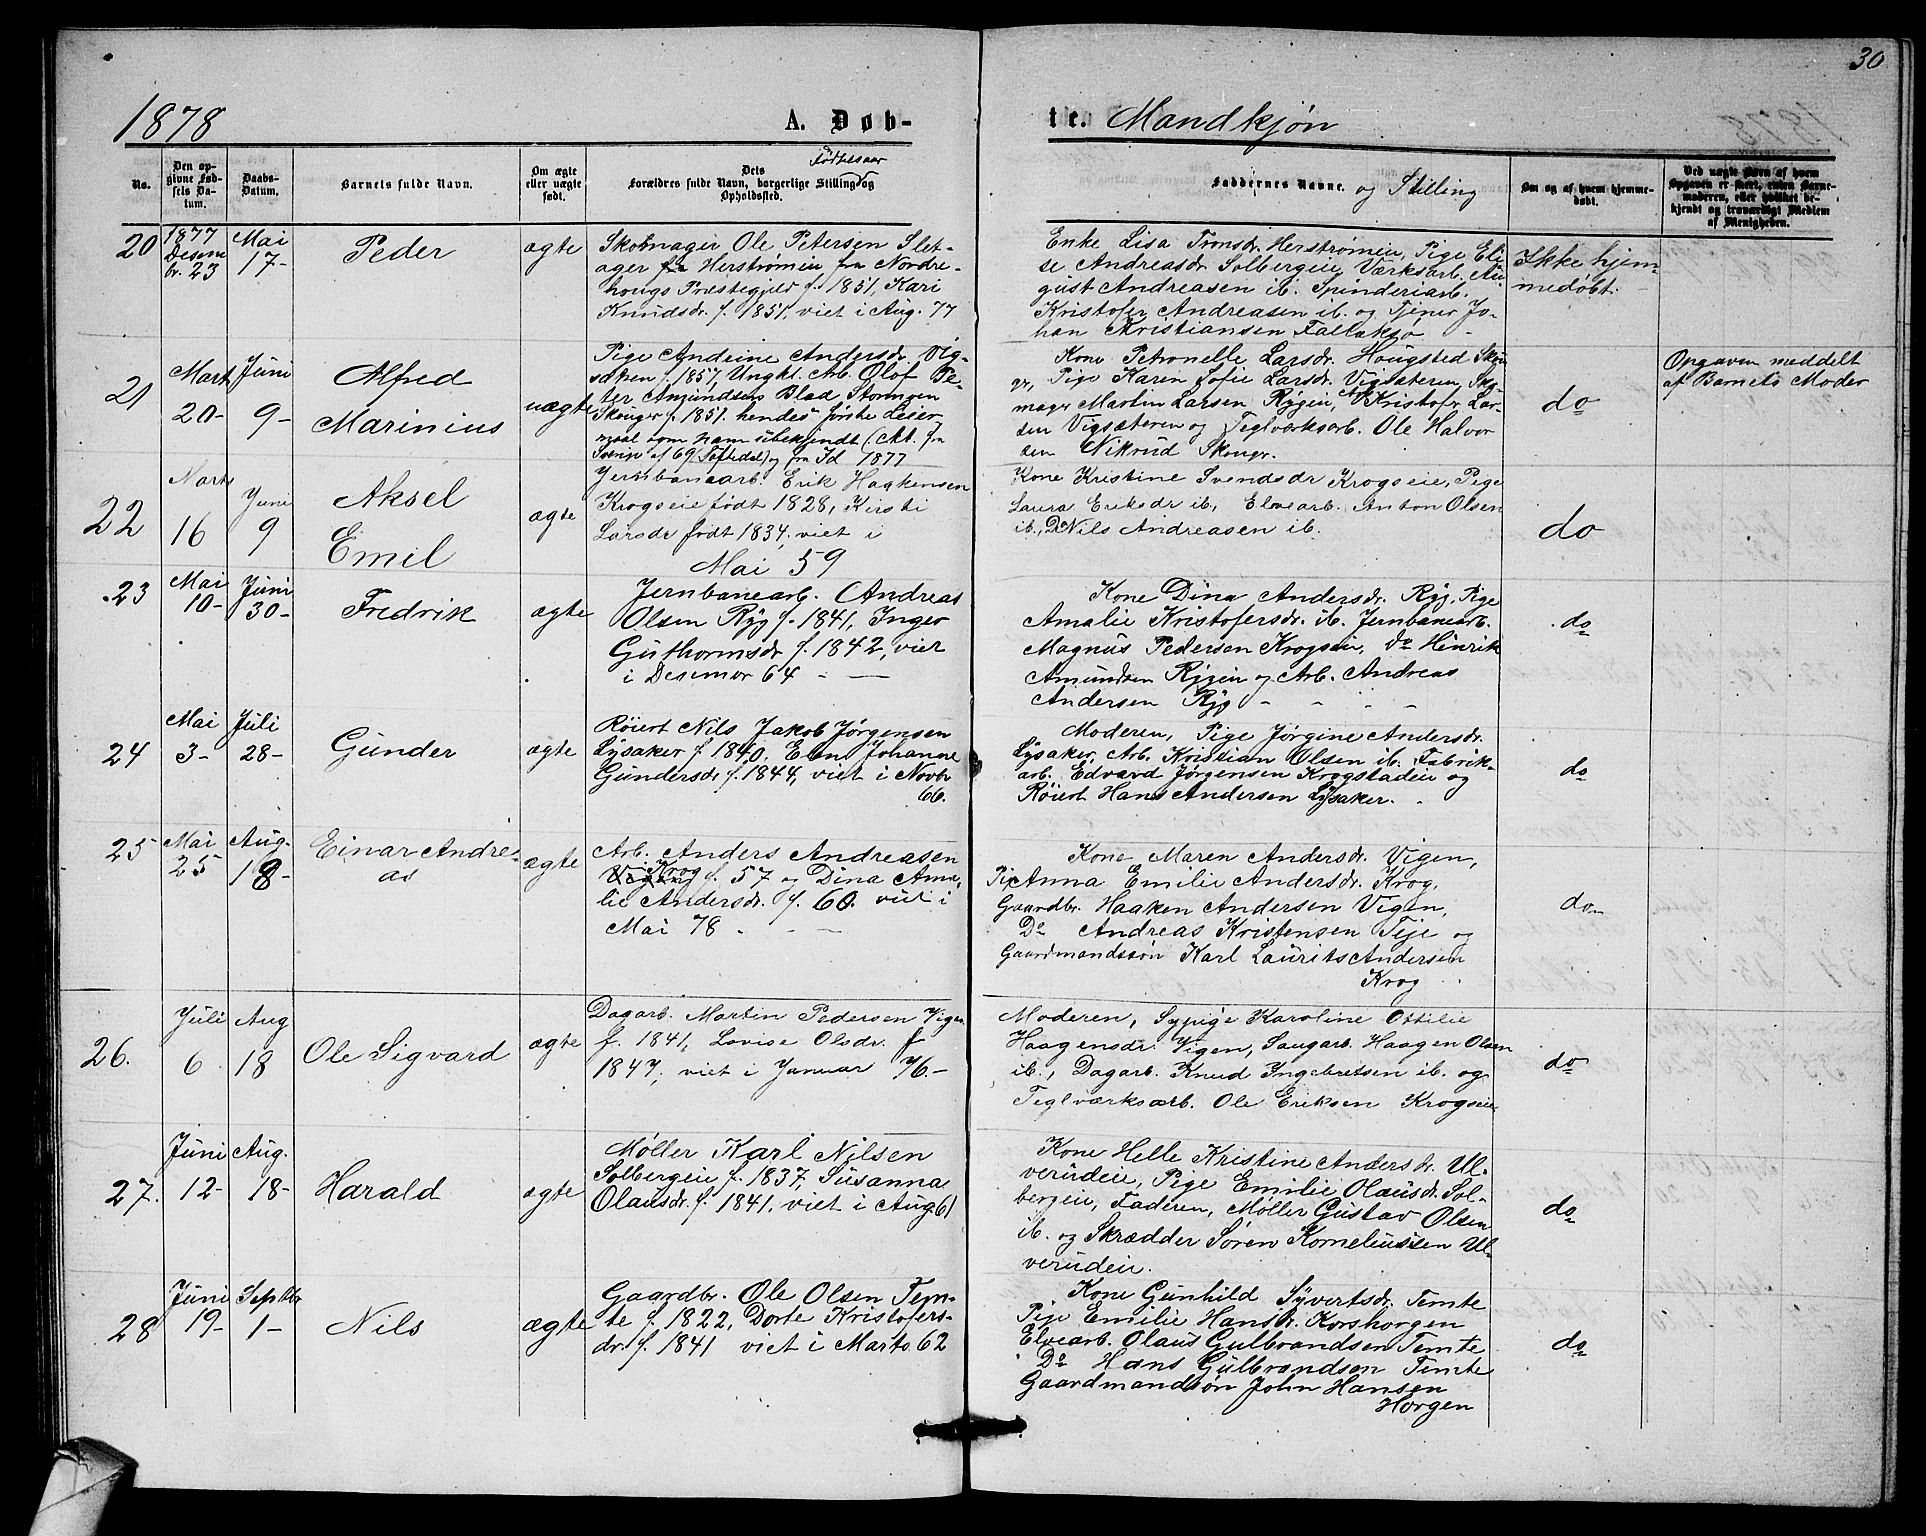 30
1878 A. Døb-
te. Mandkjøn
No.
Den op-
givne Fød-
sels Da-
tum.
Daabs-
Datum.
Barnets fulde Navn.
Om ægte
eller uægte
født.
Dets Fødselsaar
Forældres fulde Navn, borgerlige Stilling og
Opholdssted.
Faddernes Navne. og Stilling
Om og af hvem hjemme-
døbt.
Ved uægte Børn af hvem
Opgaven er skeet, enten Barne-
moderen, eller hvilket be-
kjendt og troværdigt Medlem
af Menigheden.
20
1877
Desem
br. 23
Mai
17-
Peder
ægte
Skomager Ole Petersen Slet-
ager fra Herstrømeie fra Nordre-
hougs Præstegjeld f. 1851, Kari
Knudsdr. f. 1851, viet i Aug. 77
Enke Lisa Tronsdr. Herstrømeie, Pige Eli-
se Andreasdr. Solbergeie, Værksarb. Au-
gust Andreasen ib. Spinderiarb.
Kristofer Andreasen ib. og Tjener Jo-
han Kristiansen Fallaksø
Ikke hjem-
medøbt.
21
Mart
20-
Juni
9-
Alfred
Marinius
uægte
Pige Andrine Andersdr. Vig-
sæteren f. 1857, Ungk. Arb. Olof Pe-
ter Amundsen Blad Stormgen
Skouger f. 1851. hendes første Leier-
maal som ham ubekjendt (Att. fra
Sverige af 69 Toftedal) og fra Id 1877
Kone Petronelle Larsdr. Hougsted Skou-
ger, Pige Karen Sofie Larsdr. Vigsæteren, Sko-
mager Martin Larsen Rygeie, Arb. Kristofer Lar-
sen Vigsæteren og Teglværksarb. Ole Halvor
sen Nikrud Skougr.
do
Opgaven meddelt
af Barnets Moder
22
Marts
16
Juni
9
Aksel
Emil
ægte
Jernbanearb. Erik Haakensen
Krogseie født 1828, Kirsti
Larsdr født 1834, viet i
Mai 59
Kone Kristine Svendsdr Krogseie, Pige
Laura Eriksdr ib, Elvearb. Anton Olsen
ib., Do Nils Andreasen ib.
do
23
Mai
10-
Juni
30-
Fredrik
ægte
Jernbanearb. Andreas
Olsen Ryg f. 1841, Inger
Guthormsdr f. 1842, viet
i Desember 64 - —
Kone Dina Andersdr. Ryg, Pige
Amalie Kristofersdr. ib. Jernbanearb.
Magnus Pedersen Krogseie, do Hinrik
Amundsen Rygeie og Arb. Andreas
Andersen Ryg - - - -
do
24
Mai
3-
Juli
28-
Gunder
ægte
Røiert Nils Jakob Jørgensen
Lysaker f. 1840. Elen Johanne
Gundersdr f. 1844, viet i Novbr
66.
Moderen, Pige Jørgine Andersdr.
Lysaker, Arb. Kristian Olsen ib. Fabrik-
arb. Edvard Jørgensen Krogstadeie og
Røiert Hans Andersen Lysaker. -
do
25
Mai
25
Aug.
18-
Einar Andre-
as
ægte
Arb. Anders Andreasen
Vigen Krog f. 57 og Dina Ama-
lie Andersdr. f. 60. viet i
Mai 78 - - —
Kone Maren Andersdr. Vigen,
Pig. Anna Emilie Andersdr. Krog,
Gaardbr. Haaken Andersen Vigen,
Do Andreas Kristensen Teje og
Gaardmandssøn Karl Laurits Andersen
Krog
do-
26.
Juli
6
Aug
18
Ole Sigvard
ægte
Dagarb. Martin Pedersen Vigen
f. 1841, Lovise Olsdr. f
1847, viet i Januar 76.-
Moderen, Sypige Karoline Ottilie
Haagensdr. Vigen, Saugarb. Haagen Olsen
ib., Dagarb. Knud Ingebretsen ib. og
Teglværksarb. Ole Eriksen Krogseie
do
27.
Juni
12-
Aug.
18-
Harald
ægte
Møller Karl Nilsen
Solbergeie f. 1837, Susanna
Olausdr. f. 1841, viet i Aug. 61
Kone Helle Kristine Andersdr. Ul-
verudeie, Pige Emilie Olausdr. Sol-
bergeie, Faderen, Møller Gustav Olsen
ib. og Skrædder Søren Korneliussen Ul-
verudeie.
do
28
Juni
19-
Septbr
1-
Nils
ægte
Gaardbr. Ole Olsen Tem-
te f. 1822, Dorte Kristofers-
dr. f. 1841 viet i Marts 62
Kone Gunhild Syvertsdr. Temte
Pige Emilie Hansdr. Korshorgen
Elvearb. Olaus Gulbrandsen Temte
Do Hans Gulbrandsen Temte
Gaardmandssøn John Hansen
Horgen
do